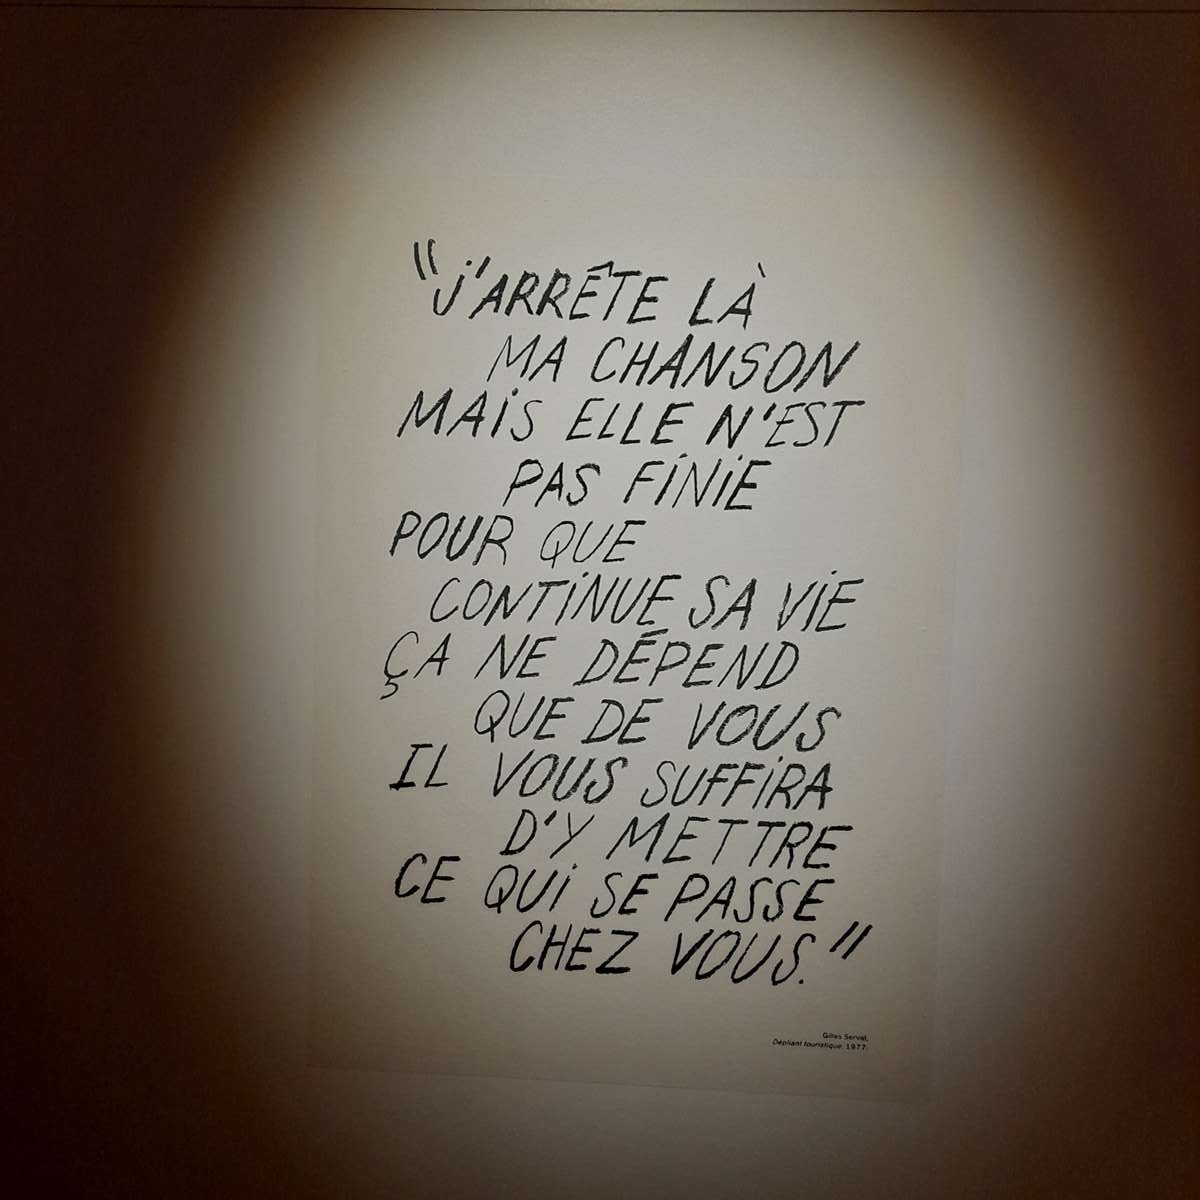 "J'ARRÊTE LÀ
MA CHANSON
MAIS ELLE N'EST
PAS FINIE
POUR QUE
CONTINUE SA VIE
ÇA NE DÉPEND
QUE DE VOUS
IL VOUS SUFFIRA
D'Y METTRE
CE QUI SE PASSE
CHEZ VOUS."
Gilles Servat,
Dépliant touristique, 1977.